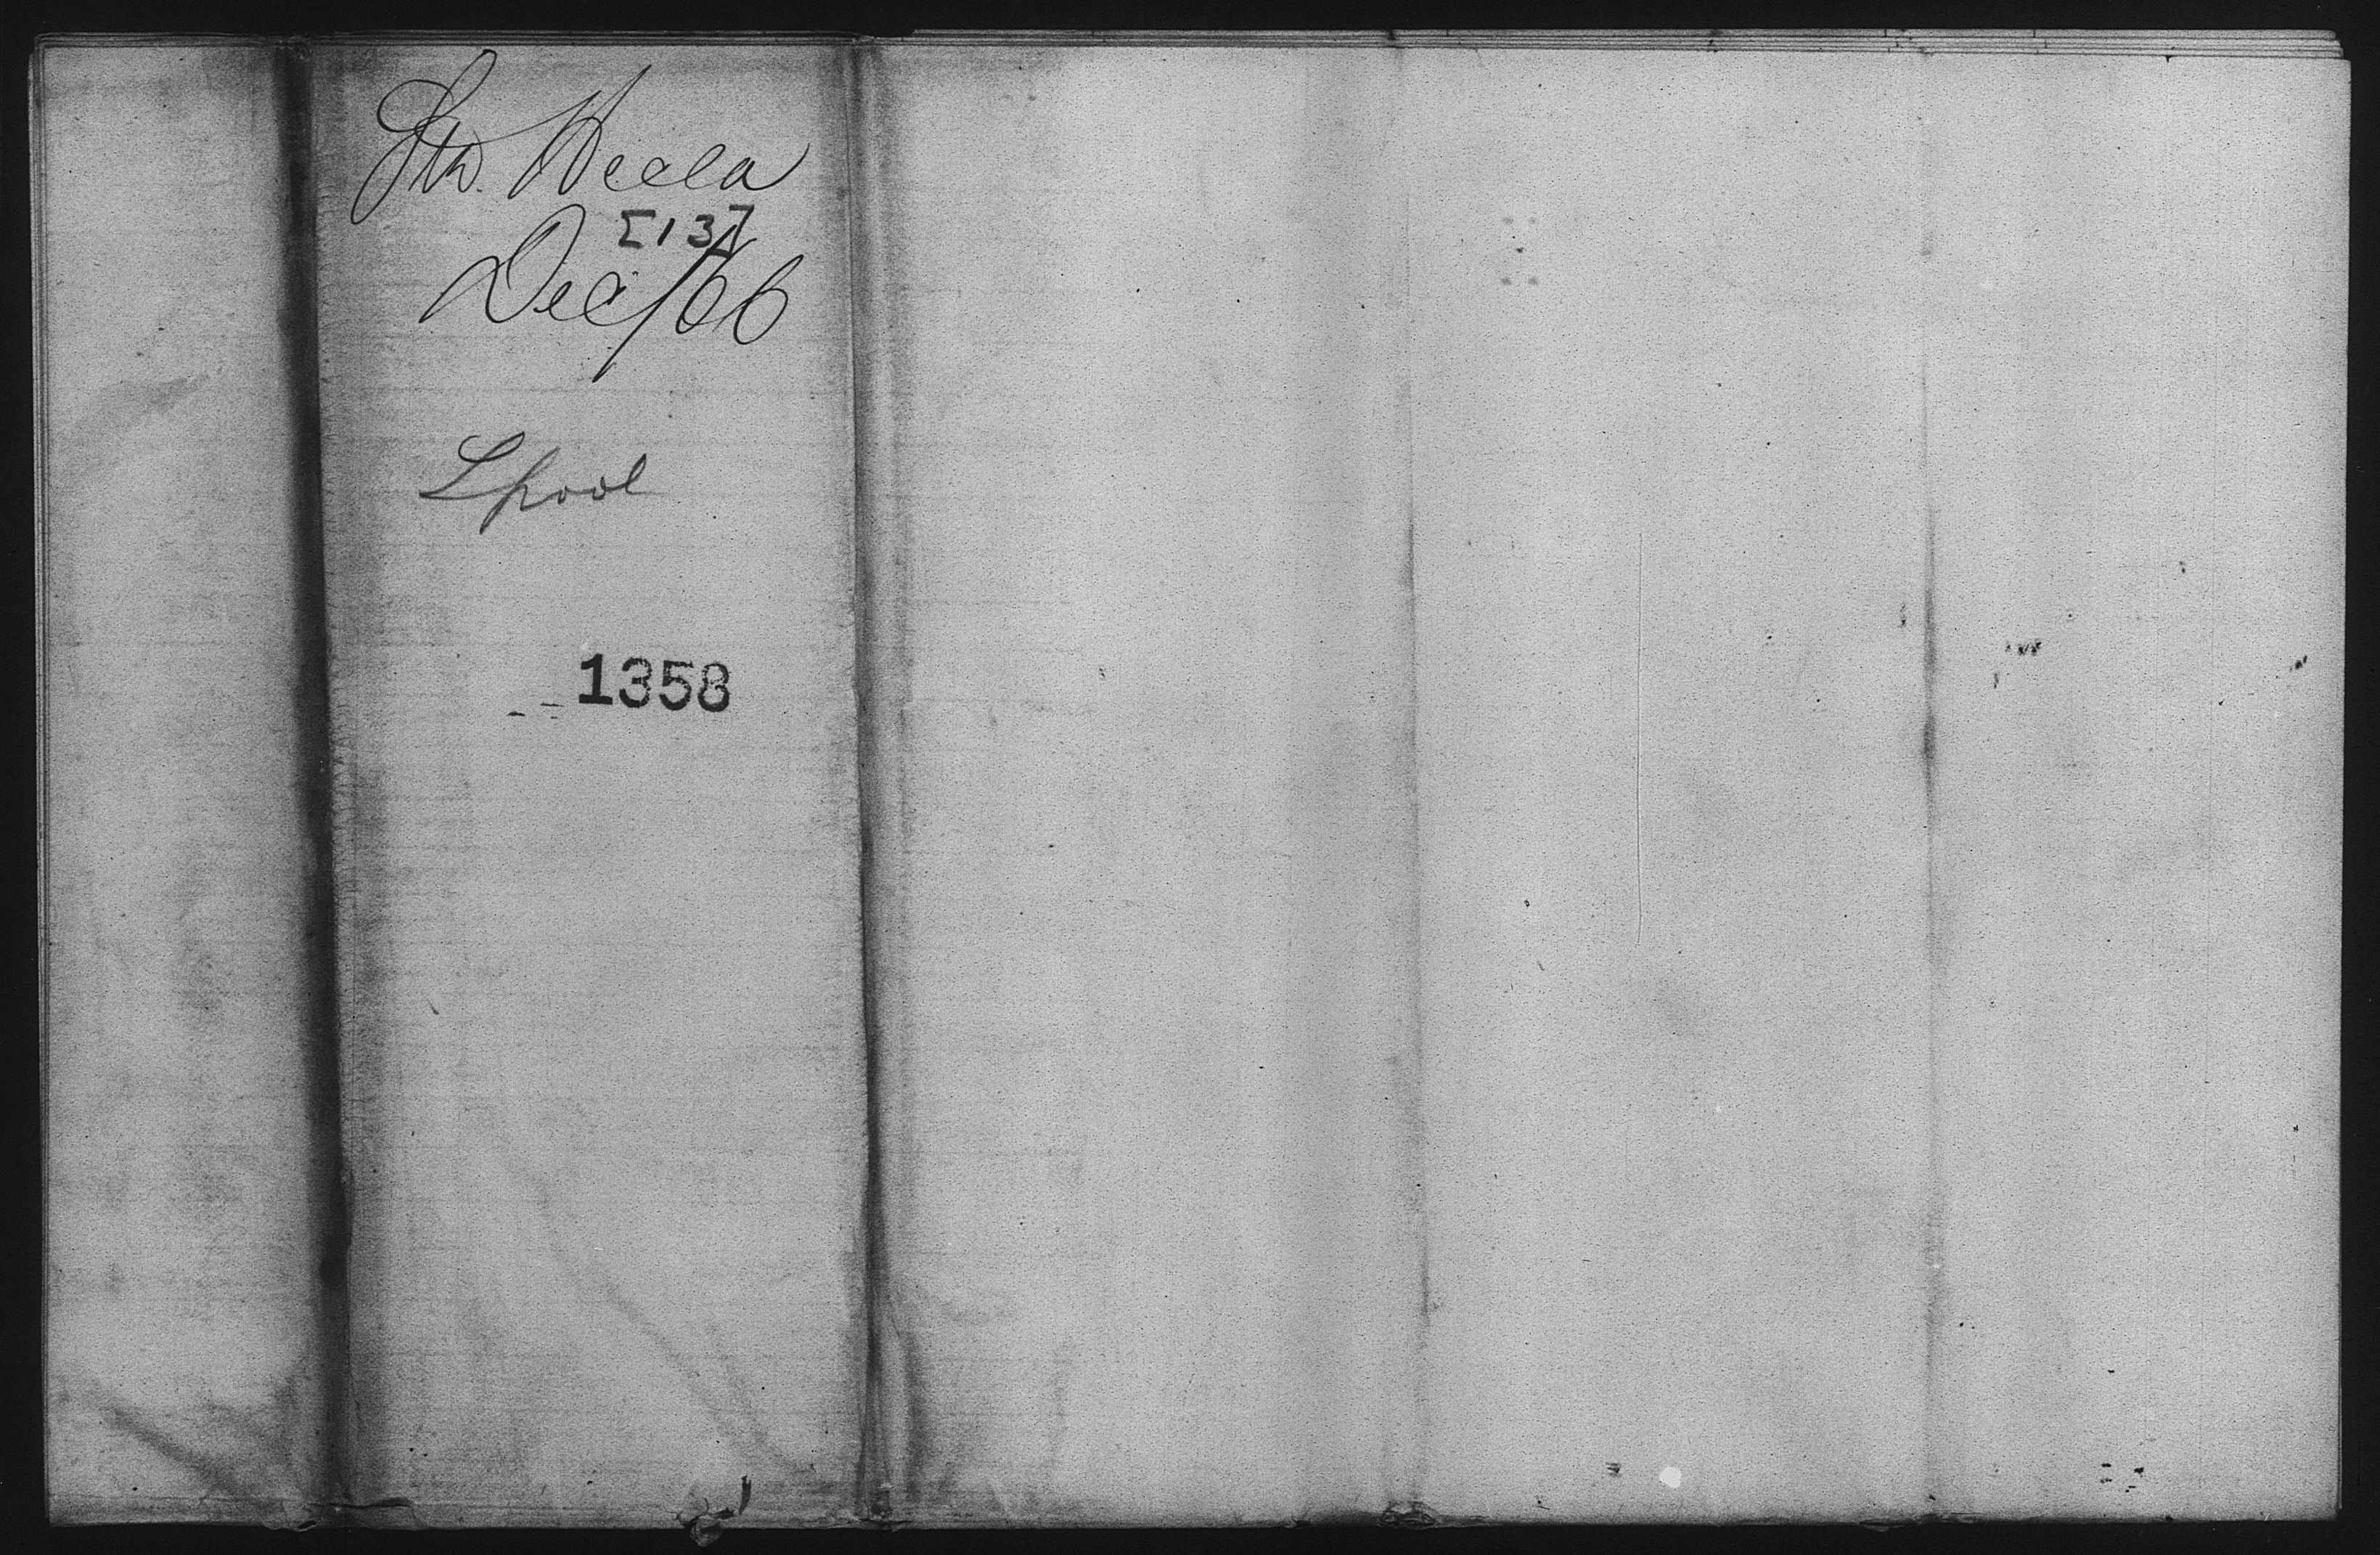 Str. Hecla
[13]
Dec/66
Lpool
1358